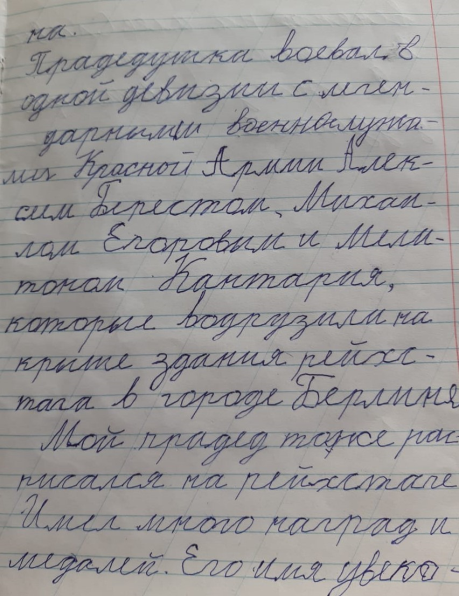 на.
Прадедушка воевал в
одной девизии с леген-
дарными военнослужа-
ми Красной Армии Алек-
сем Берестом, Михаи-
лом Егоровым и Мели-
тоном Кантария,
которые водрузили на
крыше здания рейхс-
тага в городе Берлиня
Мой прадед тоже рас-
писался на рейхстаге
Имел много наград и
медалей. Его имя увеко-